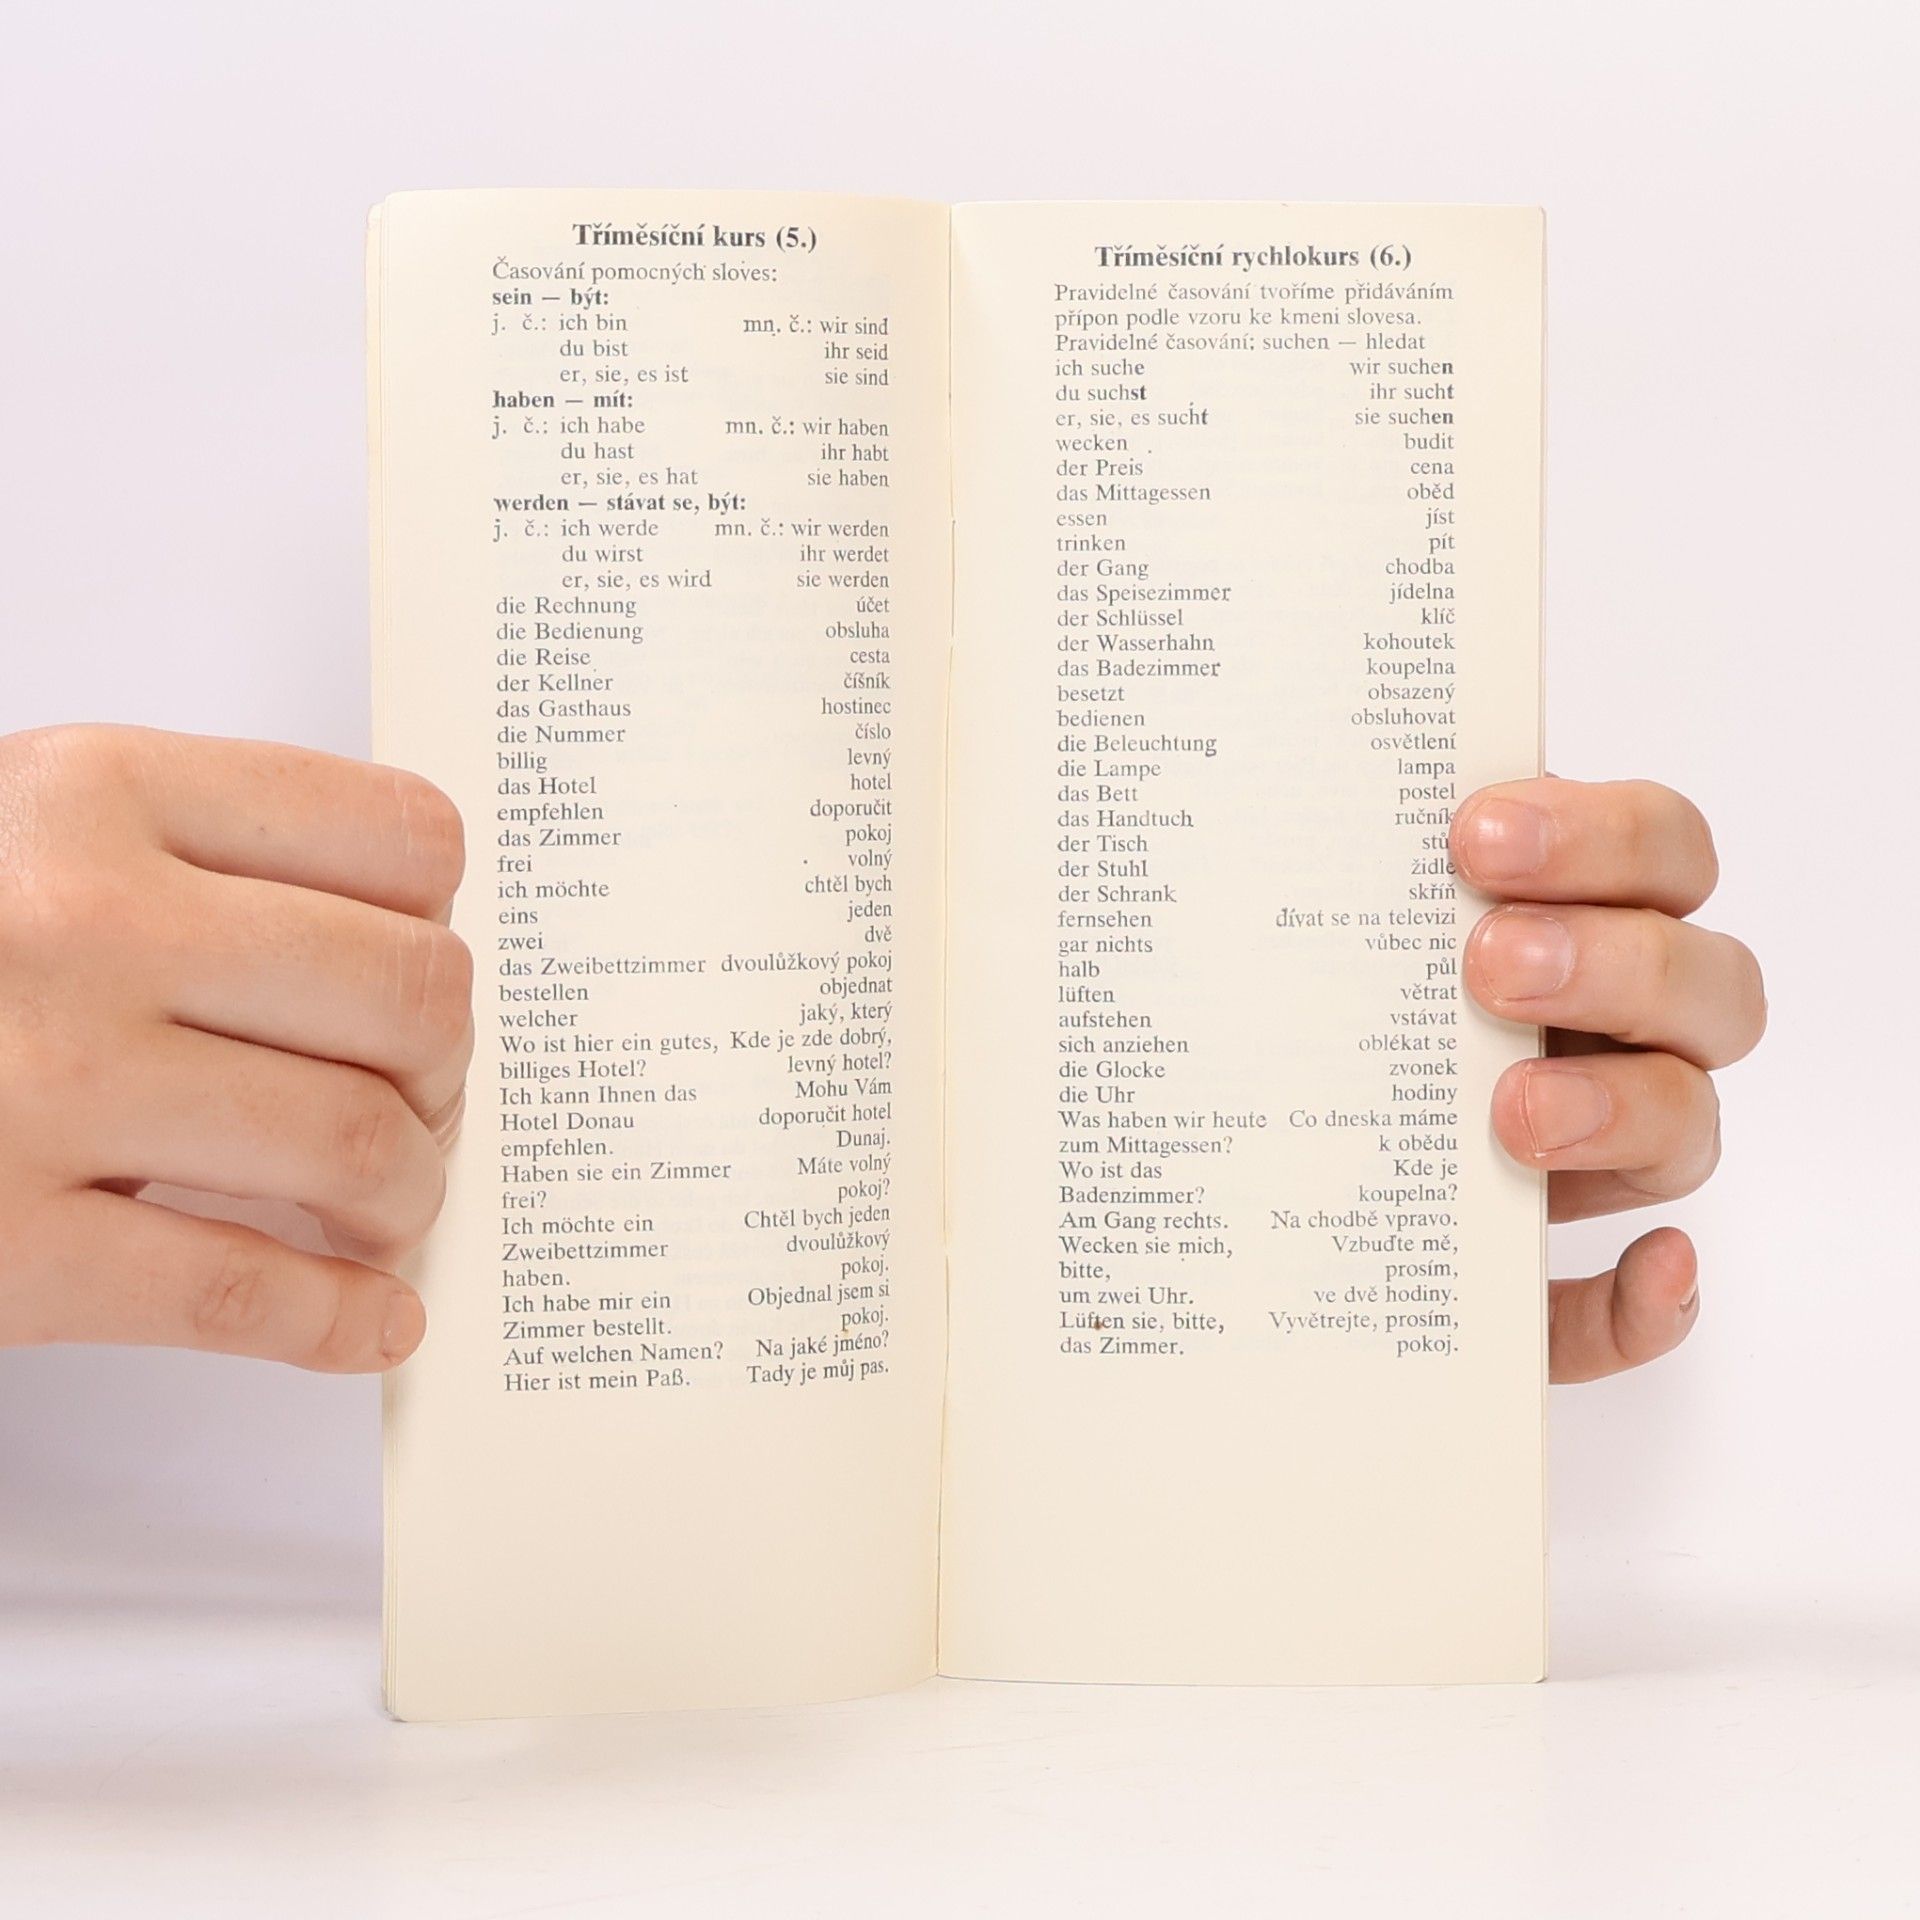 Tříměsíční kurs (5.)
Časování pomocných sloves:
sein — být:
j. č.: ich bin mn. č.: wir sind
du bist ihr seid
er, sie, es ist sie sind
haben — mít:
j. č.: ich habe mn. č.: wir haben
du hast ihr habt
er, sie, es hat sie haben
werden — stávat se, být:
j. č.: ich werde mn. č.: wir werden
du wirst ihr werdet
er, sie, es wird sie werden
die Rechnung účet
die Bedienung obsluha
die Reise cesta
der Kellner číšník
das Gasthaus hostinec
die Nummer číslo
billig levný
das Hotel hotel
empfehlen doporučit
das Zimmer pokoj
frei volný
ich möchte chtěl bych
eins jeden
zwei dvě
das Zweibettzimmer dvoulůžkový pokoj
bestellen objednat
welcher jaký, který
Wo ist hier ein gutes, Kde je zde dobrý,
billiges Hotel? levný hotel?
Ich kann Ihnen das Mohu Vám
Hotel Donau doporučit hotel
empfehlen. Dunaj.
Haben sie ein Zimmer Máte volný
frei? pokoj?
Ich möchte ein Chtěl bych jeden
Zweibettzimmer dvoulůžkový
haben. pokoj.
Ich habe mir ein Objednal jsem si
Zimmer bestellt. pokoj.
Auf welchen Namen? Na jaké jméno?
Hier ist mein Paß. Tady je můj pas.
Tříměsíční rychlokurs (6.)
Pravidelné časování tvoříme přidáváním
přípon podle vzoru ke kmeni slovesa.
Pravidelné časování: suchen — hledat
ich suche wir suchen
du suchst ihr sucht
er, sie, es sucht sie suchen
wecken budit
der Preis cena
das Mittagessen oběd
essen jíst
trinken pít
der Gang chodba
das Speisezimmer jídelna
der Schlüssel klíč
der Wasserhahn kohoutek
das Badezimmer koupelna
besetzt obsazený
bedienen obsluhovat
die Beleuchtung osvětlení
die Lampe lampa
das Bett postel
das Handtuch ručník
der Tisch stů
der Stuhl židle
der Schrank skříň
fernsehen dívat se na televizi
gar nichts vůbec nic
halb půl
lüften větrat
aufstehen vstávat
sich anziehen oblékat se
die Glocke zvonek
die Uhr hodiny
Was haben wir heute Co dneska máme
zum Mittagessen? k obědu
Wo ist das Kde je
Badenzimmer? koupelna?
Am Gang rechts. Na chodbě vpravo.
Wecken sie mich, Vzbuďte mě,
bitte, prosím,
um zwei Uhr. ve dvě hodiny.
Lüften sie, bitte, Vyvětrejte, prosím,
das Zimmer. pokoj.